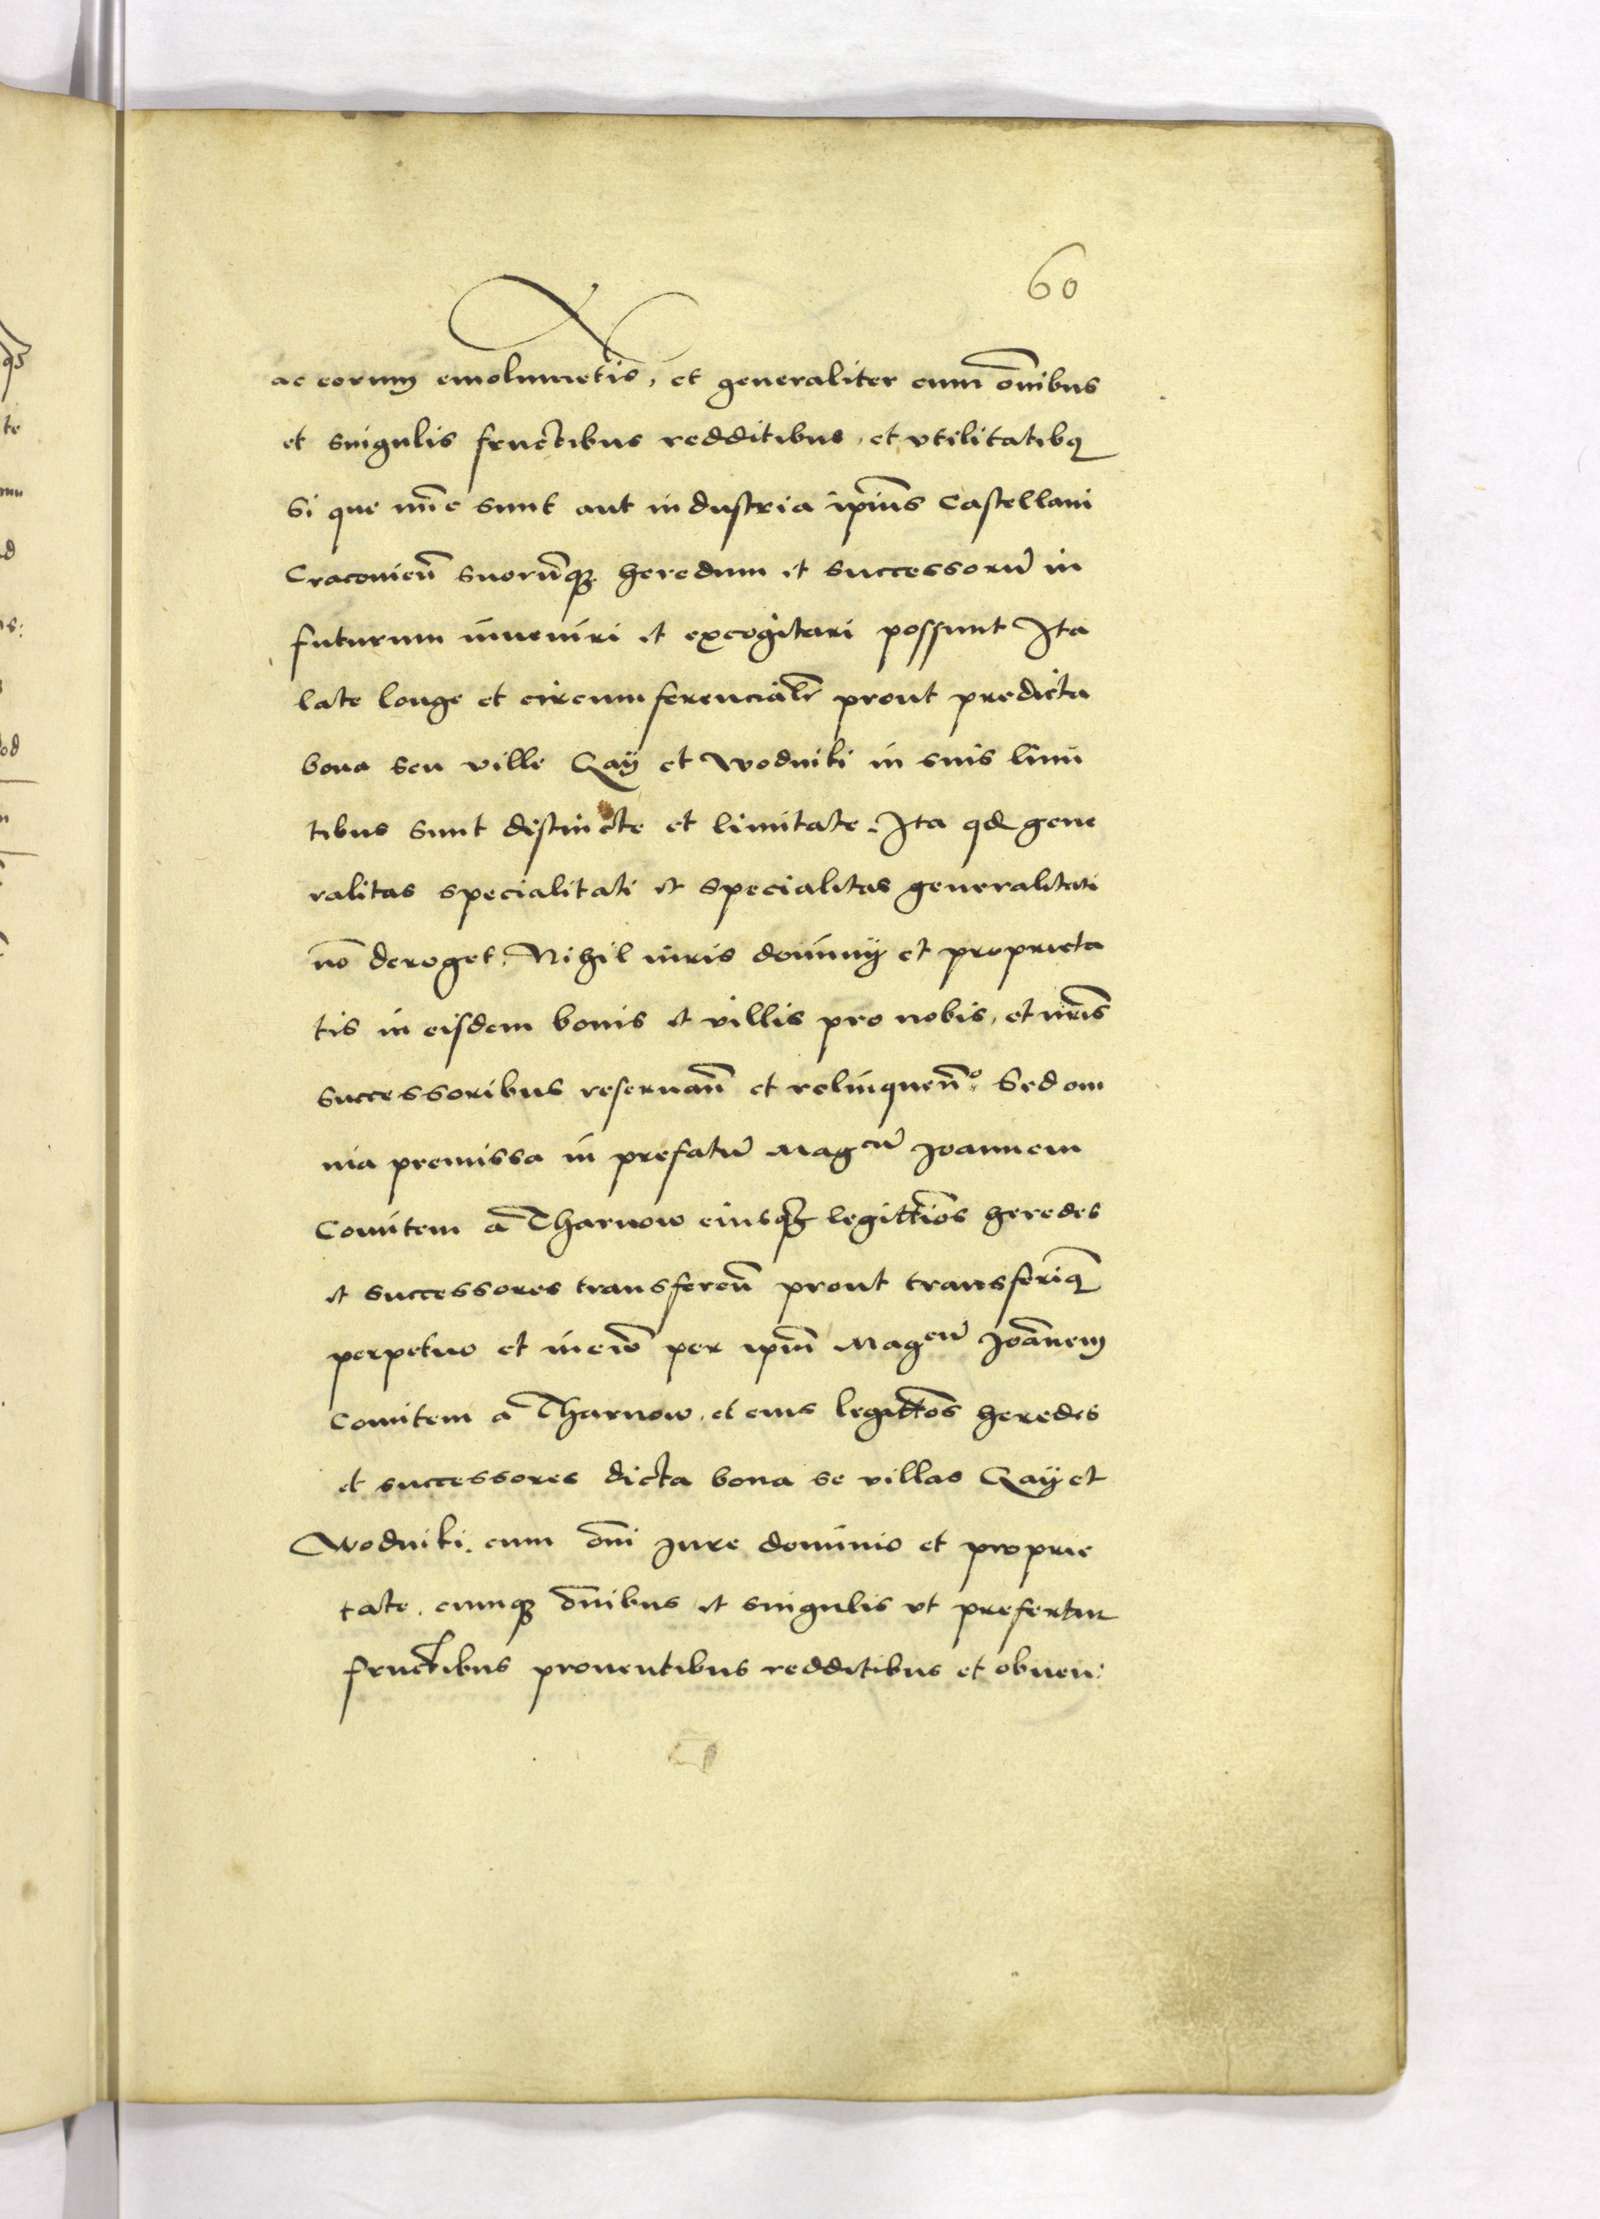 60
ac eorum emolumẽtis, et generaliter cum õnibus
et singulis fructibus redditibus, et vtilitatibꝫ
Si que nũc sunt aut industria ip̃ius Castellani
Cracovieñ suorũqꝫ heredum et successorũ in
futurum inveniri et excogitari possunt Ita
late longe et circumferencialr̃ prout predicta
bona seu ville Ray et Wodniki in suis limi
tibus sunt distincte et limitate. Ita qd gene
ralitas specialitati et specialitas generalitati
nõ deroget. Nihil iuris dominij et proprieta
tis in eisdem bonis et villis pro nobis, et nr̃is
successoribus reseruañ et relinqueñ. Sed om
nia premissa in prefatũ Magcũ Joannem
Comitem a Tharnow eiusqꝫ legittĩos heredes
et successores transfereñ prout transferimꝰ
perpetuo et in euũ per ip̃m Magcũ Joãnem
Comitem a Tharnow, et eius legittõs heredes
et successores dicta bona se villas Ray et
Wodniki. cum õni Jure dominio et proprie
tate. cumqꝫ õnibus et singulis vt prefertur
fructibus prouentibus redditibus et obuen: